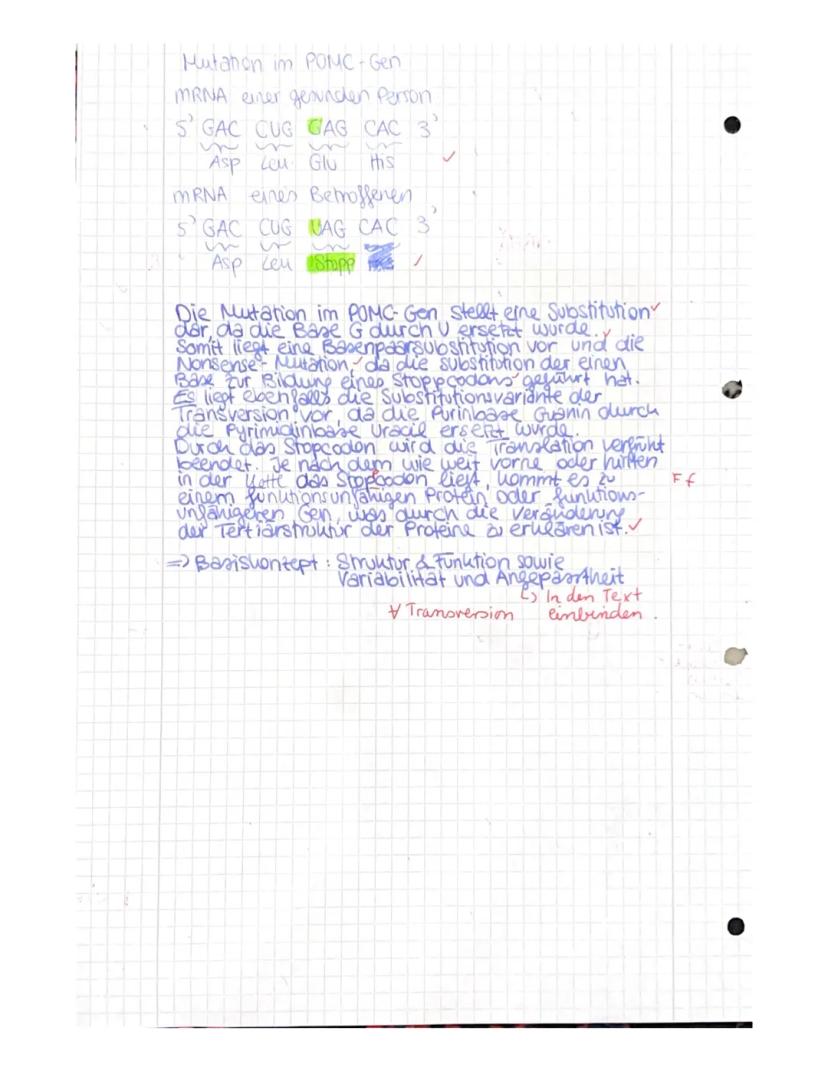 Mutation im POMC-Gen
mRNA einer gesunden Person
5' GAC CUG GAG CAC 3'
Asp Leu Glu His ✓
mRNA eines Betroffenen
5' GAC CUG UAG CAC 3'
Asp Leu Stopp ✓
Die Mutation im POMC-Gen stellt eine Substitution ✓
dar, da die Base G durch U ersetzt wurde. ✓
Somit liegt eine Basenpaarsubstitution vor und die
Nonsense-Mutation, ✓ da die Substitution der einen
Base zur Bildung eines Stoppcodons geführt hat.
Es liegt ebenfalls die Substitutionsvariante der
Transversion vor, da die Purinbase Guanin durch
die Pyrimidinbase Uracil ersetzt wurde.
Durch das Stopcodon wird die Translation verfrüht
beendet. Je nach dem wie weit vorne oder hinten
in der Kette das Stopcodon liegt, kommt es zu F f
einem funktionsunfähigen Protein oder funktions-
unfähigeren Gen, was durch die Veränderung
der Tertiärstruktur der Proteine zu erklären ist. ✓
=> Basiskonzept: Struktur & Funktion sowie
Variabilität und Angepasstheit
↳ In den Text
∀ Transversion einbinden.